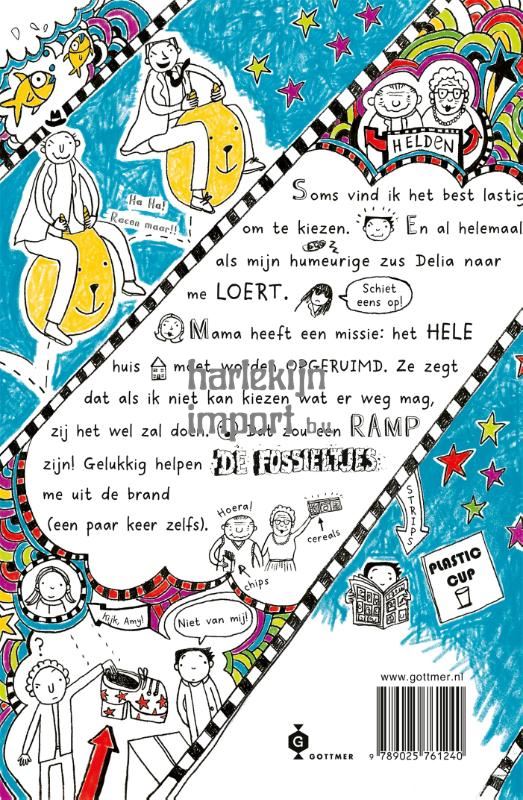 HELDEN
Ha Ha!
Racen maar!!
Soms vind ik het best lastig
om te kiezen. En al helemaal
als mijn humeurige zus Delia naar
me LOERT.
Schiet
eens op!
Mama heeft een missie: het HELE
huis moet worden OPGERUIMD. Ze zegt
dat als ik niet kan kiezen wat er weg mag,
zij het wel zal doen. Dat zou een RAMP
zijn! Gelukkig helpen DE FOSSIELTJES
me uit de brand
(een paar keer zelfs).
harlekijn
import b.v.
Hoera!
cereals
chips
STRIPS
PLASTIC
CUP
Kijk, Amy!
Niet van mij!
?
www.gottmer.nl
G
GOTTMER
9 789025 761240